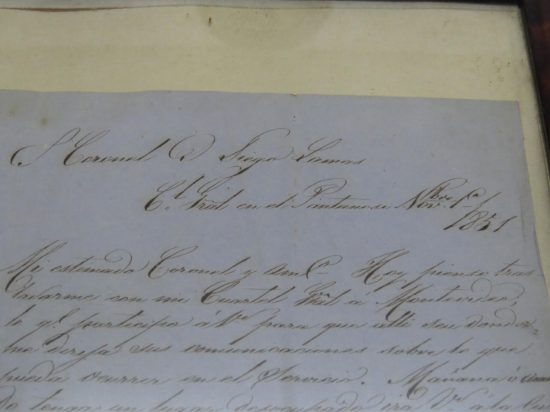 Sr Coronel D. Diego Lamas
Ct. Gral en el Pantanoso Novre 1º/
1851
Mi estimado Coronel y amº. Hoy pienso tras
ladarme con mi Cuartel Gral á Montevideo,
lo q.e participo á Vd para que allí sea donde
me dirija sus comunicaciones sobre lo que
pueda ocurrir en el Servicio. Mañana ó